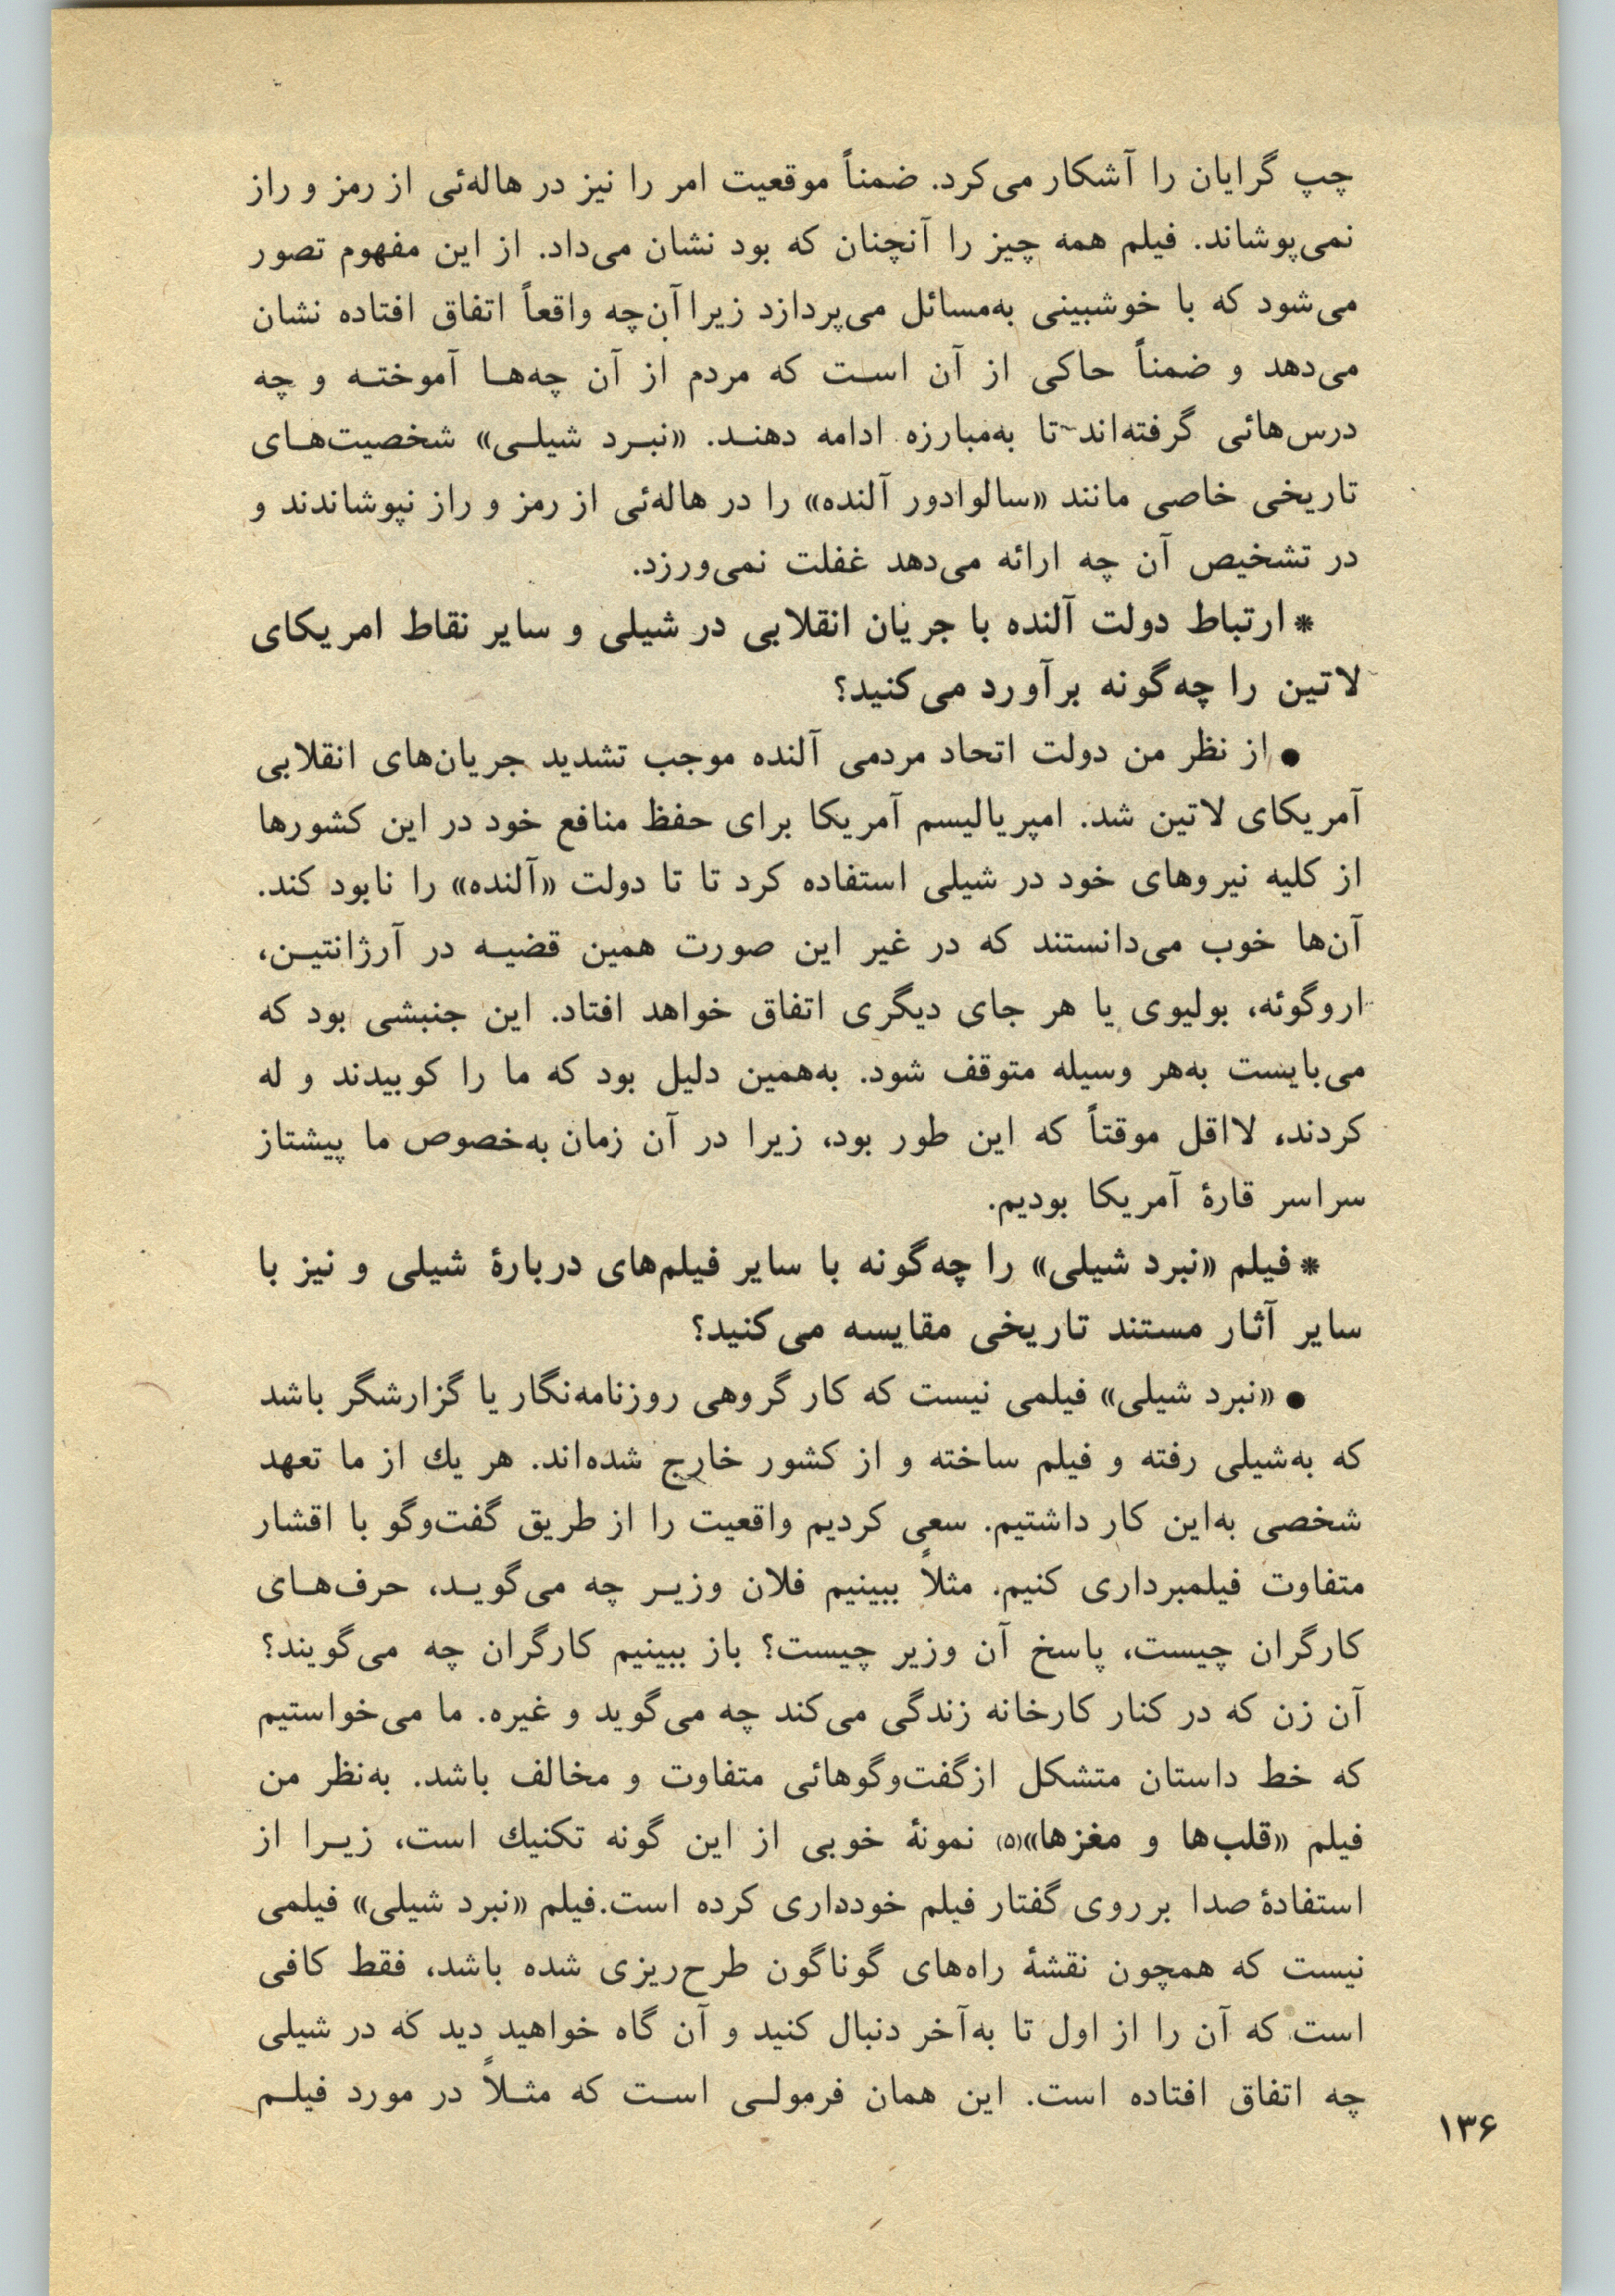 چپ گرایان را آشکار می‌کرد. ضمناً موقعیت امر را نیز در هاله‌ئی از رمز و راز
نمی‌پوشاند. فیلم همه چیز را آنچنان که بود نشان می‌داد. از این مفهوم تصور
می‌شود که با خوشبینی به‌مسائل می‌پردازد زیرا آن‌چه واقعاً اتفاق افتاده نشان
می‌دهد و ضمناً حاکی از آن است که مردم از آن چه‌ها آموخته و چه
درس‌هائی گرفته‌اند تا به‌مبارزه ادامه دهند. «نبرد شیلی» شخصیت‌های
تاریخی خاصی مانند «سالوادور آلنده» را در هاله‌ئی از رمز و راز نپوشاندند و
در تشخیص آن چه ارائه می‌دهد غفلت نمی‌ورزد.
* ارتباط دولت آلنده با جریان انقلابی در شیلی و سایر نقاط امریکای
لاتین را چه‌گونه برآورد می‌کنید؟
● از نظر من دولت اتحاد مردمی آلنده موجب تشدید جریان‌های انقلابی
آمریکای لاتین شد. امپریالیسم آمریکا برای حفظ منافع خود در این کشورها
از کلیه نیروهای خود در شیلی استفاده کرد تا تا دولت «آلنده» را نابود کند.
آن‌ها خوب می‌دانستند که در غیر این صورت همین قضیه در آرژانتین،
اروگوئه، بولیوی یا هر جای دیگری اتفاق خواهد افتاد. این جنبشی بود که
می‌بایست به‌هر وسیله متوقف شود. به‌همین دلیل بود که ما را کوبیدند و له
کردند، لااقل موقتاً که این طور بود، زیرا در آن زمان به‌خصوص ما پیشتاز
سراسر قارهٔ آمریکا بودیم.
* فیلم «نبرد شیلی» را چه‌گونه با سایر فیلم‌های دربارهٔ شیلی و نیز با
سایر آثار مستند تاریخی مقایسه می‌کنید؟
● «نبرد شیلی» فیلمی نیست که کار گروهی روزنامه‌نگار یا گزارشگر باشد
که به‌شیلی رفته و فیلم ساخته و از کشور خارج شده‌اند. هر یك از ما تعهد
شخصی به‌این کار داشتیم. سعی کردیم واقعیت را از طریق گفت‌وگو با اقشار
متفاوت فیلمبرداری کنیم. مثلاً ببینیم فلان وزیر چه می‌گوید، حرف‌های
کارگران چیست، پاسخ آن وزیر چیست؟ باز ببینیم کارگران چه می‌گویند؟
آن زن که در کنار کارخانه زندگی می‌کند چه می‌گوید و غیره. ما می‌خواستیم
که خط داستان متشکل ازگفت‌وگوهائی متفاوت و مخالف باشد. به‌نظر من
فیلم «قلب‌ها و مغزها»(۵) نمونهٔ خوبی از این گونه تکنیك است، زیرا از
استفادهٔ صدا برروی گفتار فیلم خودداری کرده است.فیلم «نبرد شیلی» فیلمی
نیست که همچون نقشهٔ راه‌های گوناگون طرح‌ریزی شده باشد، فقط کافی
است که آن را از اول تا به‌آخر دنبال کنید و آن گاه خواهید دید که در شیلی
چه اتفاق افتاده است. این همان فرمولی است که مثلاً در مورد فیلم
۱۳۶